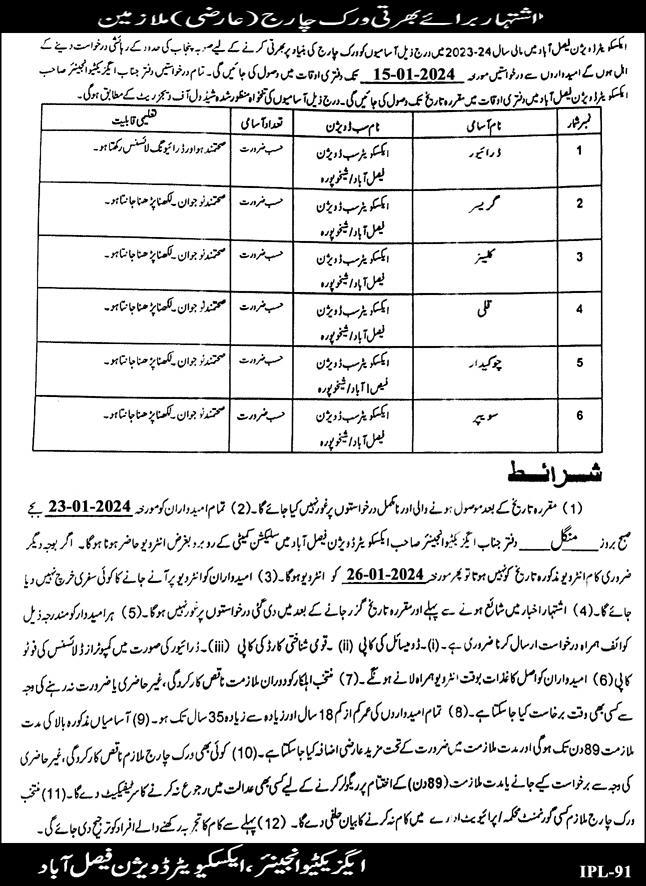 اشتہار برائے بھرتی ورک چارج (عارضی) ملازمین
ایکسکیویٹر ڈویژن فیصل آباد میں مالی سال 24-2023 میں درج ذیل آسامیوں کو ورک چارج کی بنیاد پر بھرتی کرنے کے لیے صوبہ پنجاب کی حدود کے رہائشی درخواست دینے کے
اہل ہوں گے امیدواروں سے درخواستیں مورخہ 15-01-2024 تک دفتری اوقات میں وصول کی جائیں گی۔ تمام درخواستیں دفتر جناب ایگزیکٹیو انجینئر صاحب
ایکسکیویٹر ڈویژن فیصل آباد میں دفتری اوقات میں مقررہ تاریخ تک وصول کی جائیں گی۔ درج ذیل آسامیوں کی تنخواہ منظور شدہ شیڈول آف ویجز ریٹ کے مطابق ہو گی۔
نمبر شمار نام آسامی نام سب ڈویژن تعداد آسامی تعلیمی قابلیت
1 ڈرائیور ایکسکیویٹر سب ڈویژن فیصل آباد/شیخوپورہ حسب ضرورت صحتمند ہو اور ڈرائیونگ لائسنس رکھتا ہو۔
2 گریسر ایکسکیویٹر سب ڈویژن فیصل آباد/شیخوپورہ حسب ضرورت صحتمند نوجوان۔ لکھنا پڑھنا جانتا ہو۔
3 کلینر ایکسکیویٹر سب ڈویژن فیصل آباد/شیخوپورہ حسب ضرورت صحتمند نوجوان۔ لکھنا پڑھنا جانتا ہو۔
4 قلی ایکسکیویٹر سب ڈویژن فیصل آباد/شیخوپورہ حسب ضرورت صحتمند نوجوان۔ لکھنا پڑھنا جانتا ہو۔
5 چوکیدار ایکسکیویٹر سب ڈویژن فیصل آباد/شیخوپورہ حسب ضرورت صحتمند نوجوان۔ لکھنا پڑھنا جانتا ہو۔
6 سویپر ایکسکیویٹر سب ڈویژن فیصل آباد/شیخوپورہ حسب ضرورت صحتمند نوجوان۔ لکھنا پڑھنا جانتا ہو۔
شرائط
(1) مقررہ تاریخ کے بعد موصول ہونے والی اور نامکمل درخواستوں پر غور نہیں کیا جائے گا۔ (2) تمام امیدواران کو مورخہ 23-01-2024 بجے
صبح بروز منگل دفتر جناب ایگزیکٹیو انجینئر صاحب ایکسکیویٹر ڈویژن فیصل آباد میں سلیکشن کمیٹی کے روبرو بغرض انٹرویو حاضر ہونا ہو گا۔ اگر بوجہ دیگر
ضروری کام انٹرویو مذکورہ تاریخ کو نہیں ہوتا تو پھر مورخہ 26-01-2024 کو انٹرویو ہو گا۔ (3) امیدواران کو انٹرویو پر آنے جانے کا کوئی سفری خرچ نہیں دیا
جائے گا۔ (4) اشتہار اخبار میں شائع ہونے سے پہلے اور مقررہ تاریخ گزر جانے کے بعد میں دی گئی درخواستوں پر غور نہیں ہو گا۔ (5) ہر امیدوار کو مندرجہ ذیل
کوائف ہمراہ درخواست ارسال کرنا ضروری ہے۔ (i)۔ ڈومیسائل کی کاپی (ii)۔ قومی شناختی کارڈ کی کاپی (iii)۔ ڈرائیور کی صورت میں کمپیوٹرائزڈ لائسنس کی فوٹو
کاپی (6) امیدواران کو اصل کاغذات بوقت انٹرویو ہمراہ لانے ہونگے۔ (7) منتخب اہلکار کو دوران ملازمت ناقص کارکردگی، غیر حاضری یا ضرورت نہ رہنے کی وجہ
سے کسی بھی وقت برخاست کیا جا سکتا ہے۔ (8) تمام امیدواروں کی عمر کم از کم 18 سال اور زیادہ سے زیادہ 35 سال تک ہو۔ (9) آسامیاں مذکورہ بالا کی مدت
ملازمت 89 دن تک ہو گی اور مدت ملازمت میں ضرورت کے تحت مزید عارضی اضافہ کیا جا سکتا ہے۔ (10) کوئی بھی ورک چارج ملازم ناقص کارکردگی، غیر حاضری
کی وجہ سے برخواست کیے جانے یا مدت ملازمت (89 دن) کے اختتام پر ریگولر کرنے کے لیے کسی بھی عدالت میں رجوع نہ کرنے کا سرٹیفکیٹ دے گا۔ (11) منتخب
ورک چارج ملازم کسی گورنمنٹ محکمہ/ پرائیویٹ ادارے میں کام نہ کرنے کا بیان حلفی دے گا۔ (12) پہلے سے کام کا تجربہ رکھنے والے افراد کو ترجیح دی جائے گی۔
ایگزیکٹیو انجینئر، ایکسکیویٹر ڈویژن فیصل آباد
IPL-91